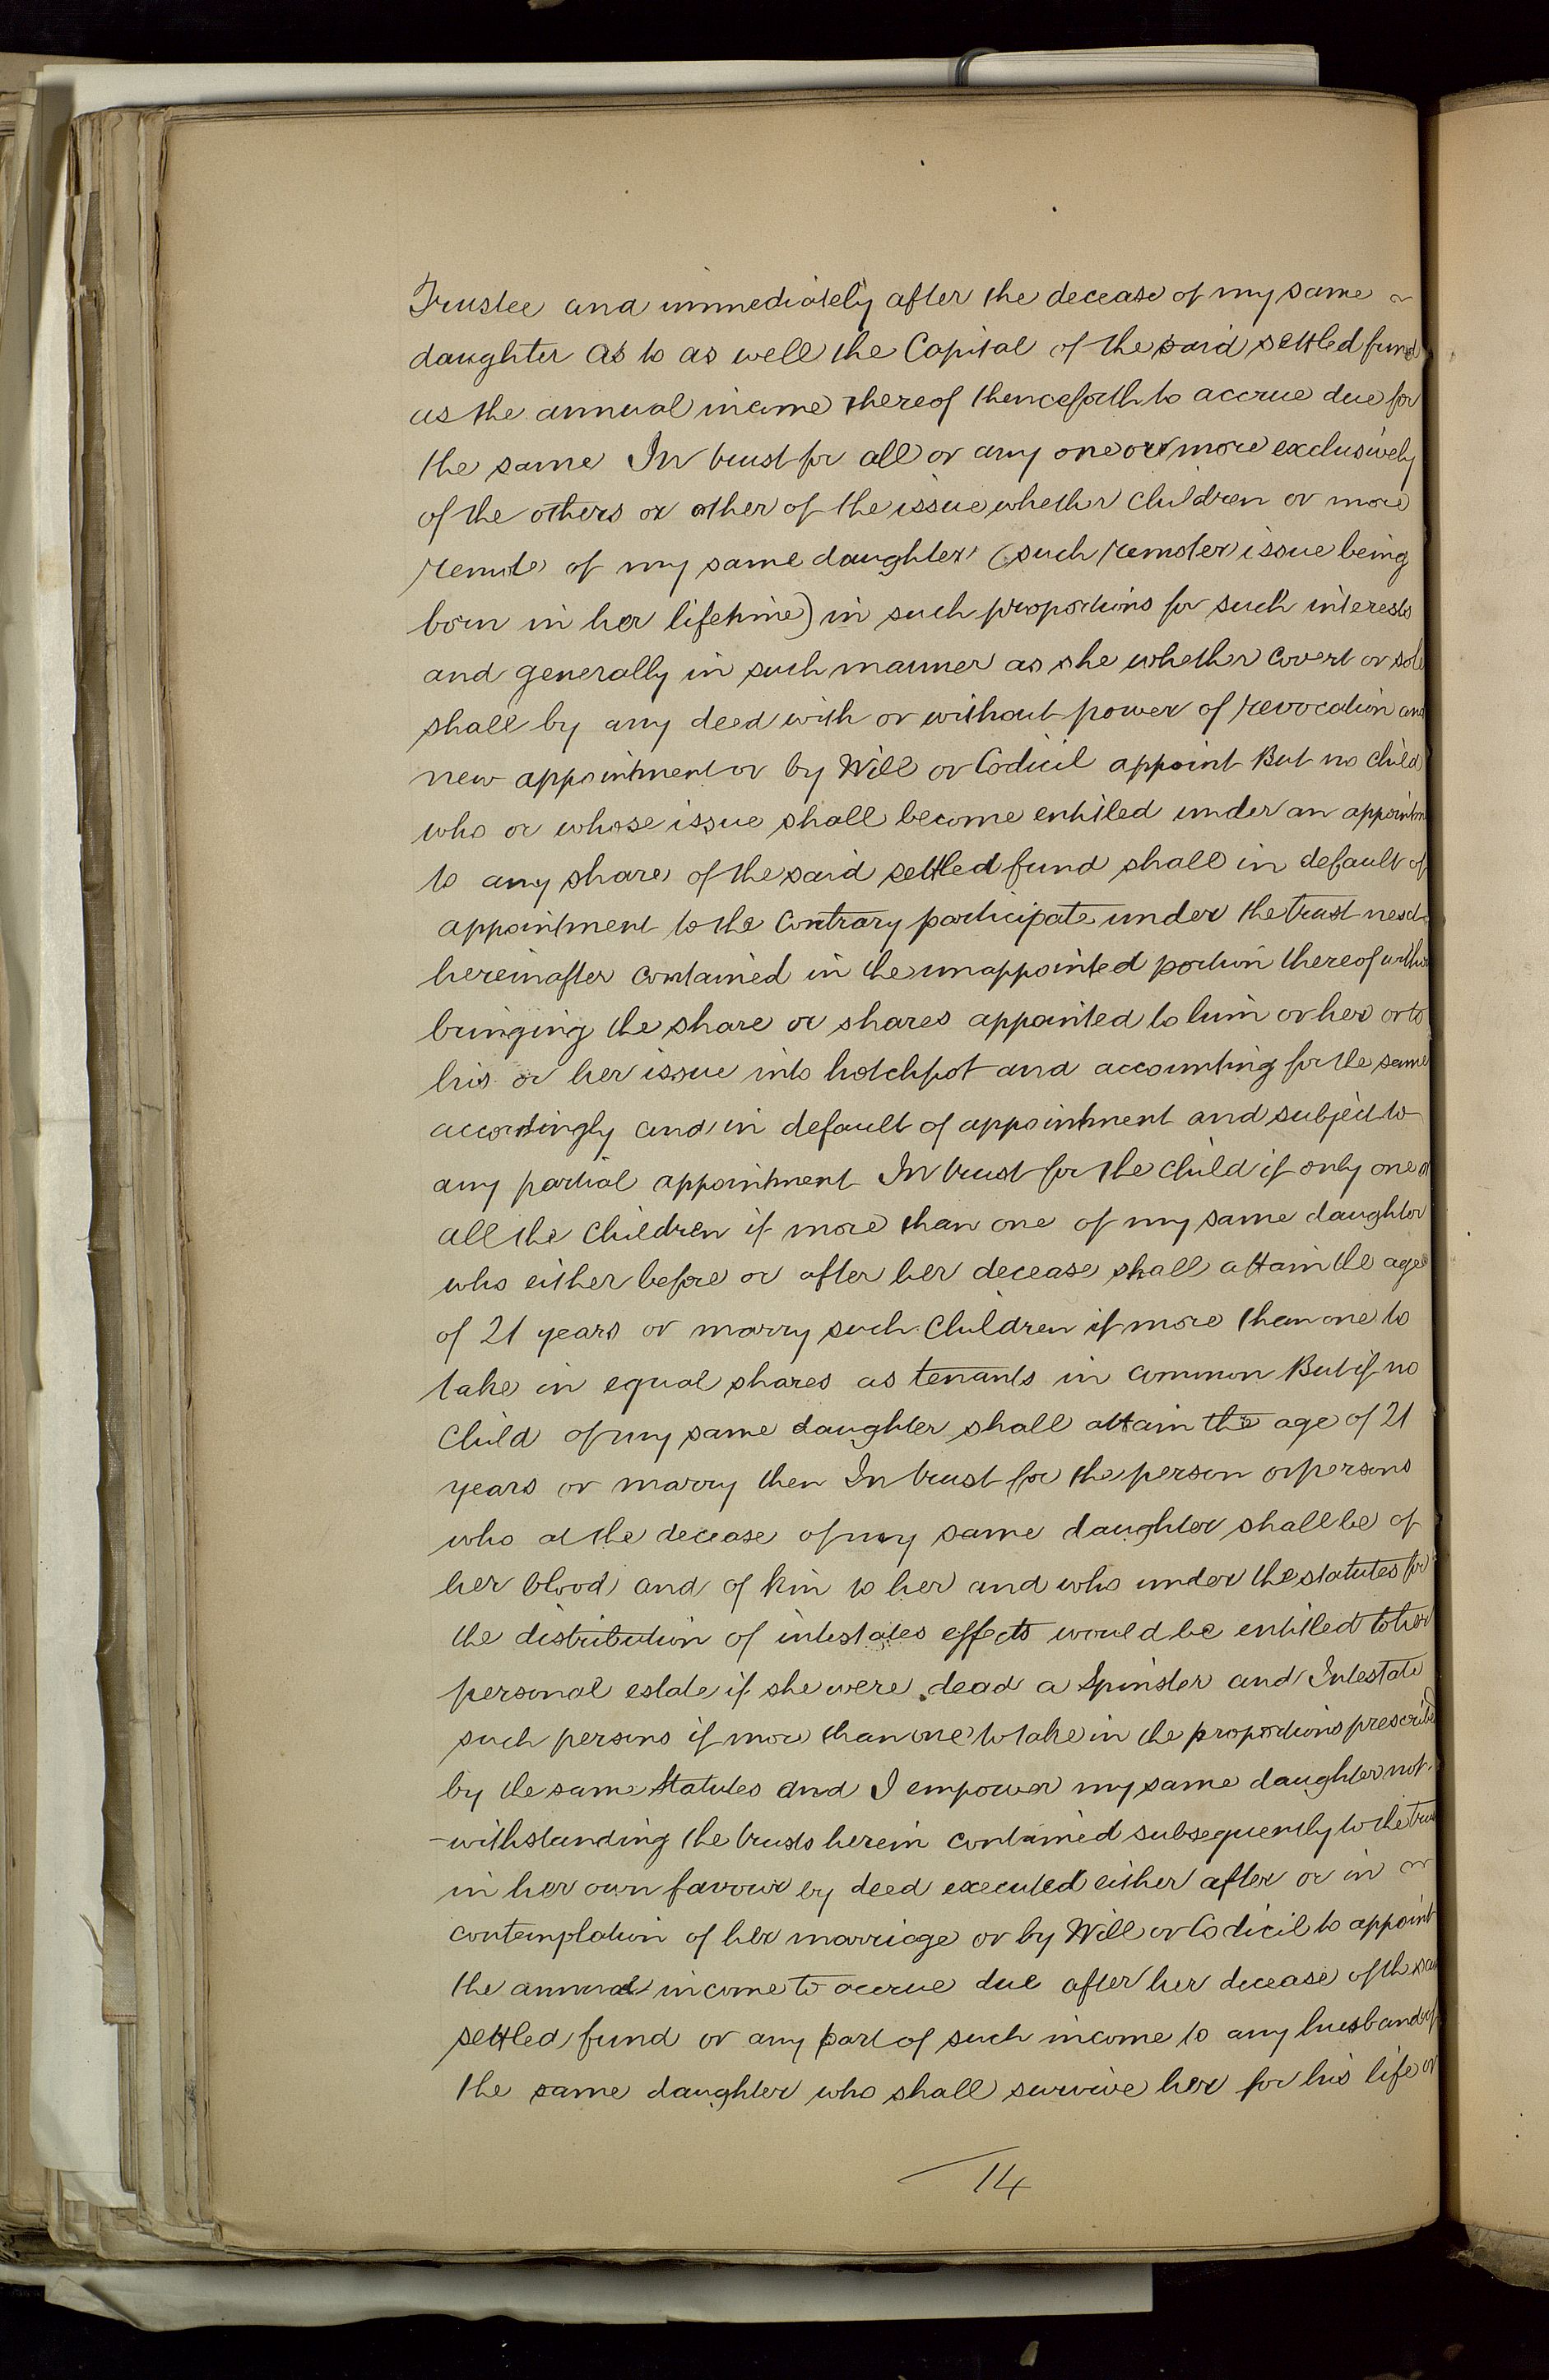 Trustee and immediately after the decease of my same
daughter as to as well the Capital of the said settled fund
as the annual income thereof thenceforth to accrue due for
the same In trust for all or any one or more exclusively
of the others or other of the issue whether children or more
remote of my same daughter (such remoter issue being
born in her lifetime) in such proportions for such interests
and generally in such manner as she whether covert or sole
shall by any deed with or without power of revocation and
new appointment or by Will or Codicil appoint But no child
who or whose issue shall become entitled under an appointm
to any share of the said settled fund shall in default of
appointment to the Contrary participate under the trust next
hereinafter contained in the unappointed portion thereof witho
bringing the share or shares appointed to him or her or to
his or her issue into hotchpot and accounting for the same
accordingly and in default of appointment and subject to
any partial appointment In trust for the child if only one or
all the children if more than one of my same daughter
who either before or after her decease shall attain the age
of 21 years or marry such children if more than one to
take in equal shares as tenants in common But if no
Child of my same daughter shall attain the age of 21
years or marry then In trust for the person or persons
who at the decease of my same daughter shall be of
her blood and of kin to her and who under the statutes for
the distribution of intestates effects would be entitled to her
personal estate if she were dead a Spinster and Intestate
such persons if more than one to take in the proportions prescribed
by the same Statutes and I empower my same daughter not-
-withstanding the trusts herein contained subsequently to the trus
in her own favour by deed executed either after or in
contemplation of her marriage or by Will or Codicil to appoint
the annual income to accrue due after her decease of the sai
settled fund or any part of such income to any husband of
the same daughter who shall survive her for his life or
14